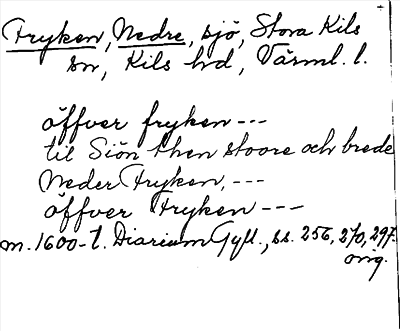 Fryken, Nedre, sjö, Stora Kils
sn, Kils hd, Värml. l.
öffver fryken ---
til Siön then stoore och brede
Neder Fryken, ---
öffver Fryken ---
m. 1600-t. Diarium Gyll., ss. 256, 270, 297.
orig.